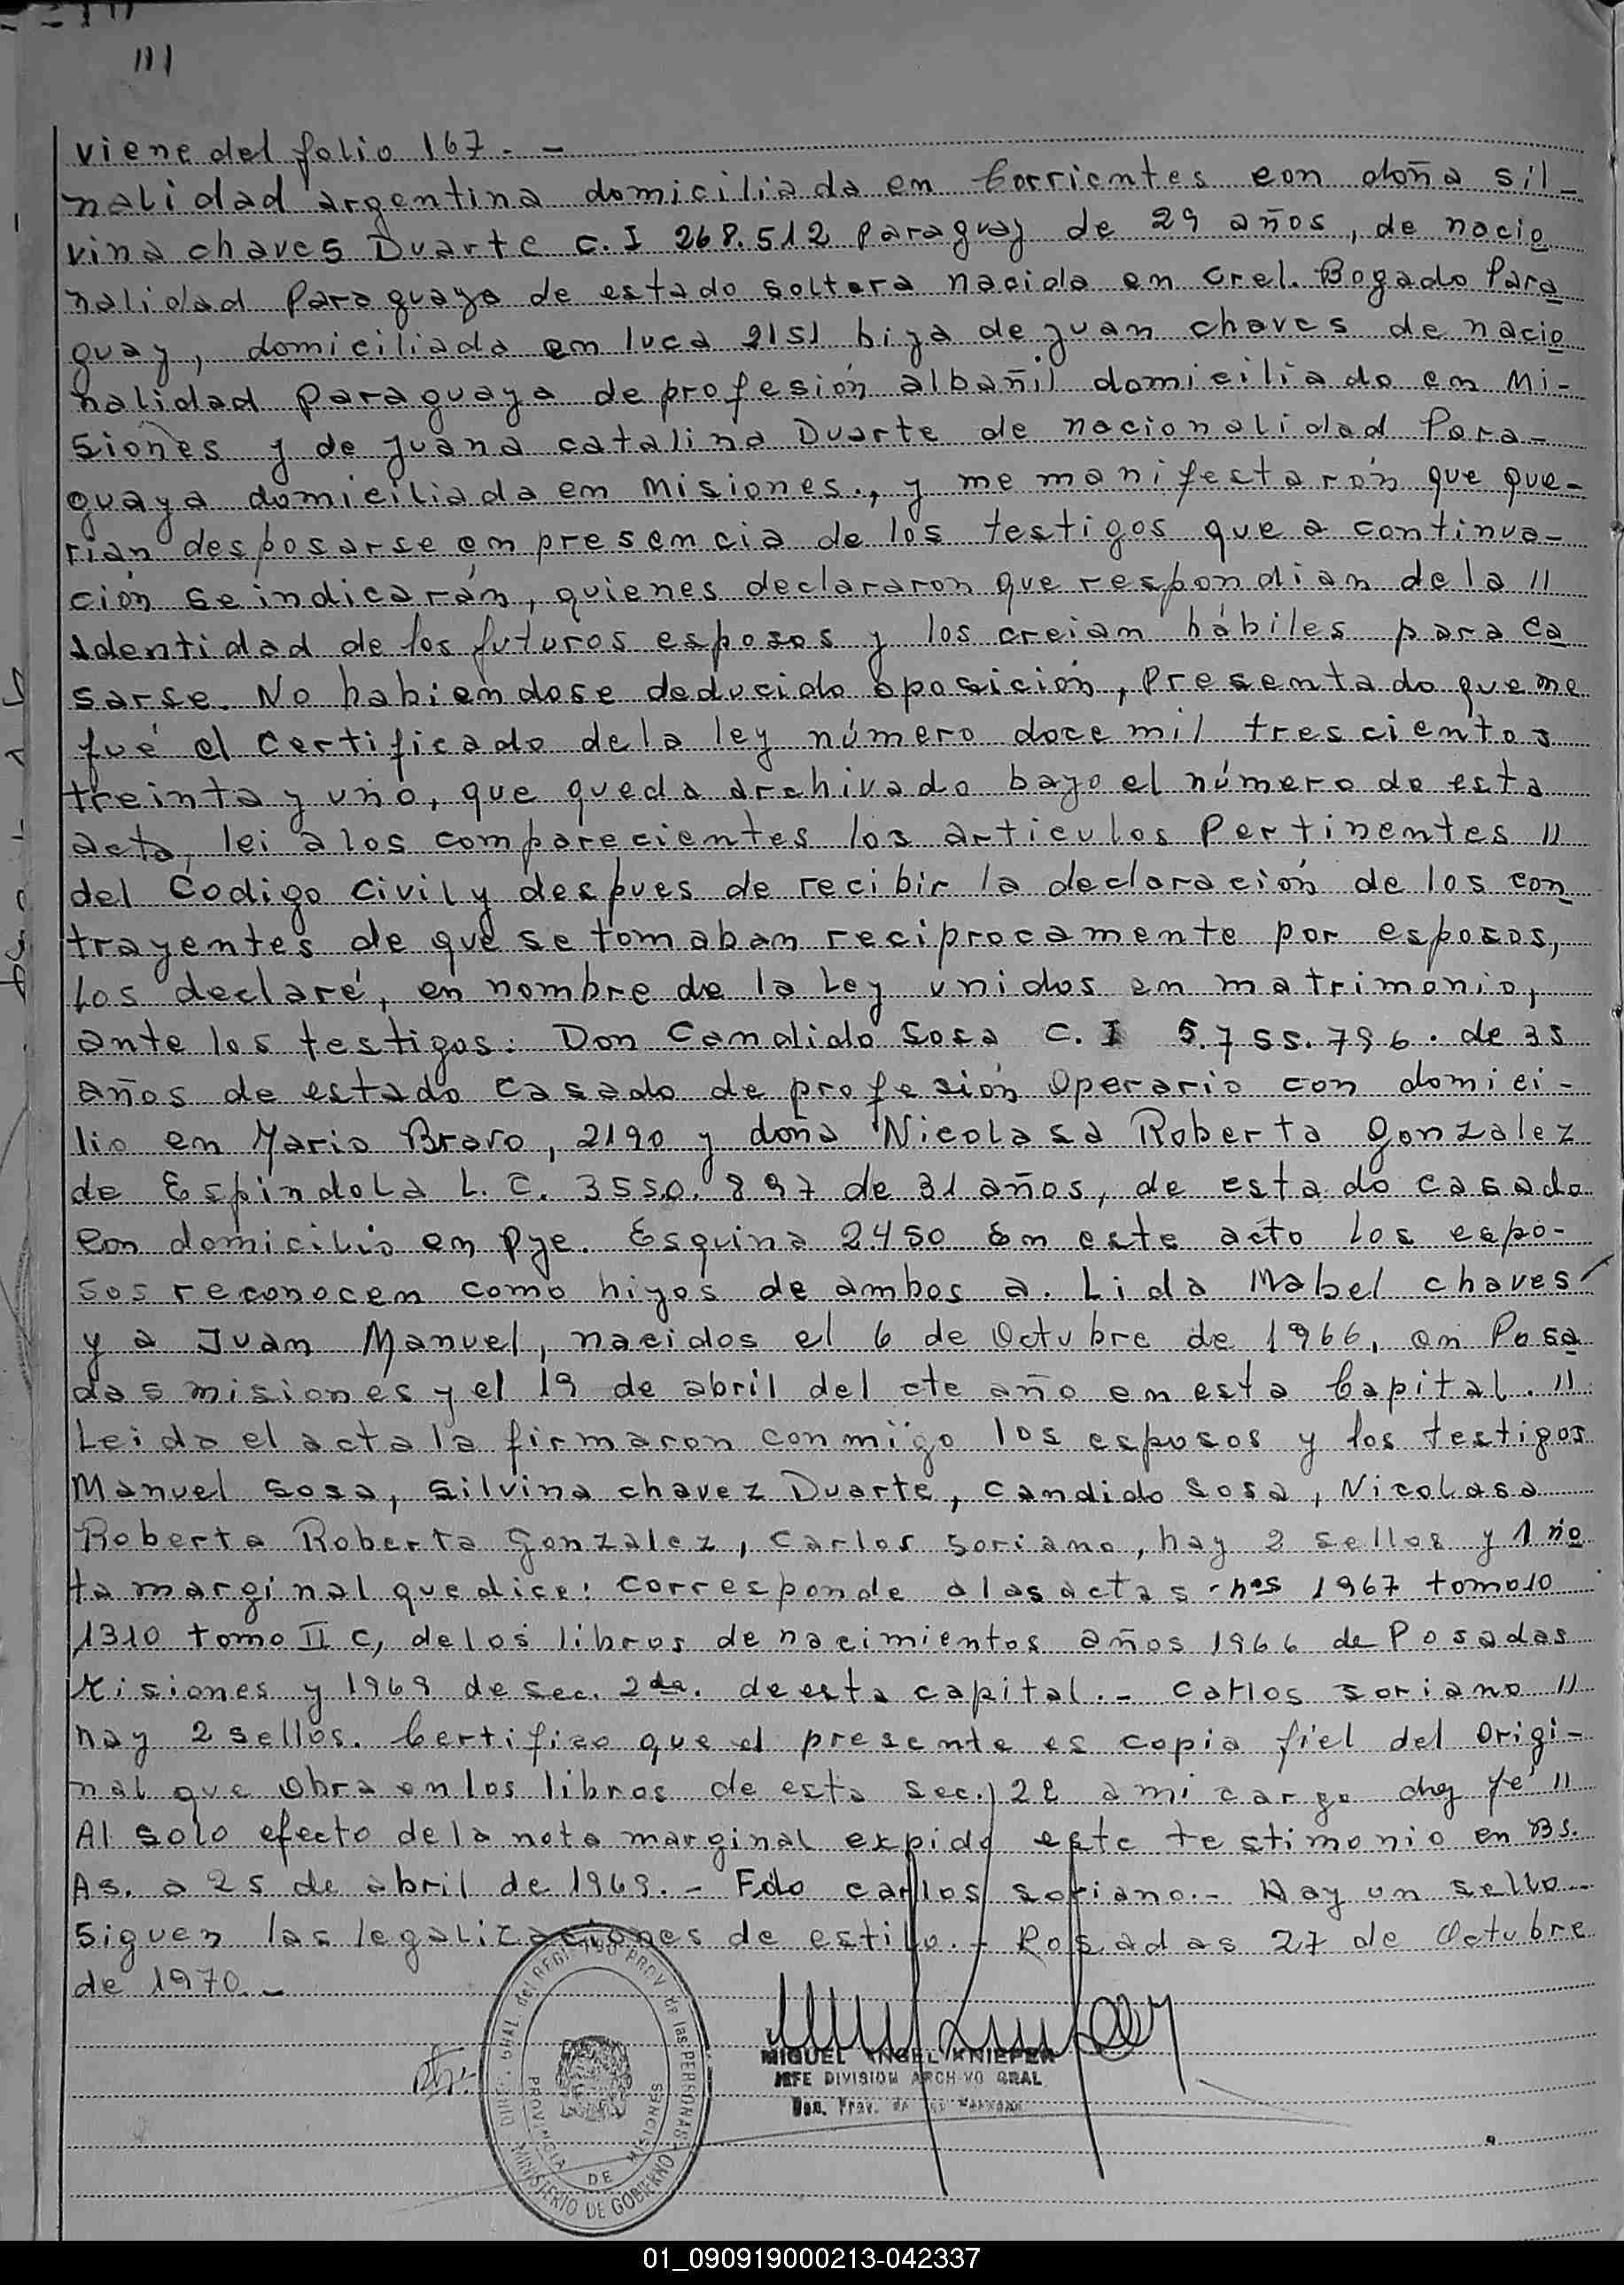 111
viene del folio 167. -
nalidad argentina domiciliada en Corrientes con doña sil-
vina chaves Duarte C. I 268.512 Paraguay de 29 años, de nacio
nalidad Paraguaya de estado soltera nacida en Crel. Bogado Para
guay, domiciliada en luca 2151 hija de juan chaves de nacio
nalidad paraguaya de profesión albañil domiciliado en Mi-
siones y de juana catalina Duarte de nacionalidad Para-
guaya domiciliada en Misiones., y me manifestarón que que-
rian desposarse en presencia de los testigos que a continua-
ción se indicarán, quienes declararon que respondian de la "
Identidad de los futuros esposos y los creian hábiles para ca
sarse. No habiendose deducido oposición, Presentado que me
fué el certificado de la ley número doce mil trescientos
treinta y uno, que queda archivado bajo el número de esta
acta, lei a los comparecientes los articulos Pertinentes "
del Codigo Civil y despues de recibir la declaración de los con
trayentes de que se tomaban reciprocamente por esposos,
los declaré, en nombre de la Ley unidos en matrimonio,
ante los testigos: Don Candido Sosa C. I 5.755.796. de 35
años de estado casado de profesión Operario con domici-
lio en Mario Bravo, 2190 y doña Nicolasa Roberta Gonzalez
de Espindola L. C. 3550.897 de 31 años, de estado casada
con domicilio en Pje. Esquina 2450 En este acto los espo-
sos reconocen como hijos de ambos a. Lida Mabel chaves
y a Juan Manuel, nacidos el 6 de Octubre de 1966, en Posa
das misiones y el 19 de abril del cte año en esta Capital. "
Leida el acta la firmaron conmigo los esposos y los testigos
Manuel Sosa, Silvina chavez Duarte, Candido Sosa, Nicolasa
Roberta Roberta Gonzalez, Carlos Soriano, hay 2 sellos y 1 no
ta marginal que dice: Corresponde a las actas nos 1967 tomo 10
1310 tomo II C, de los libros de nacimientos años 1966 de Posadas
Misiones y 1969 de Sec. 2da. de esta capital. - Carlos Soriano "
hay 2 sellos. Certifico que el presente es copia fiel del Origi-
nal que Obra en los libros de esta Sec. 22 a mi cargo doy fé "
Al solo efecto de la nota marginal expido este testimonio en Bs.
As. a 25 de abril de 1969. - Fdo Carlos Soriano. - Hay un sello
Siguen las legalizaciones de estilo. - Posadas 27 de Octubre
de 1970. -
MIGUEL ANGEL KNIEPER
JEFE DIVISION ARCHIVO GRAL
PROV. de las PERSONAS
MINISTERIO DE GOBIERNO
PROVINCIA DE MISIONES
01_090919000213-042337